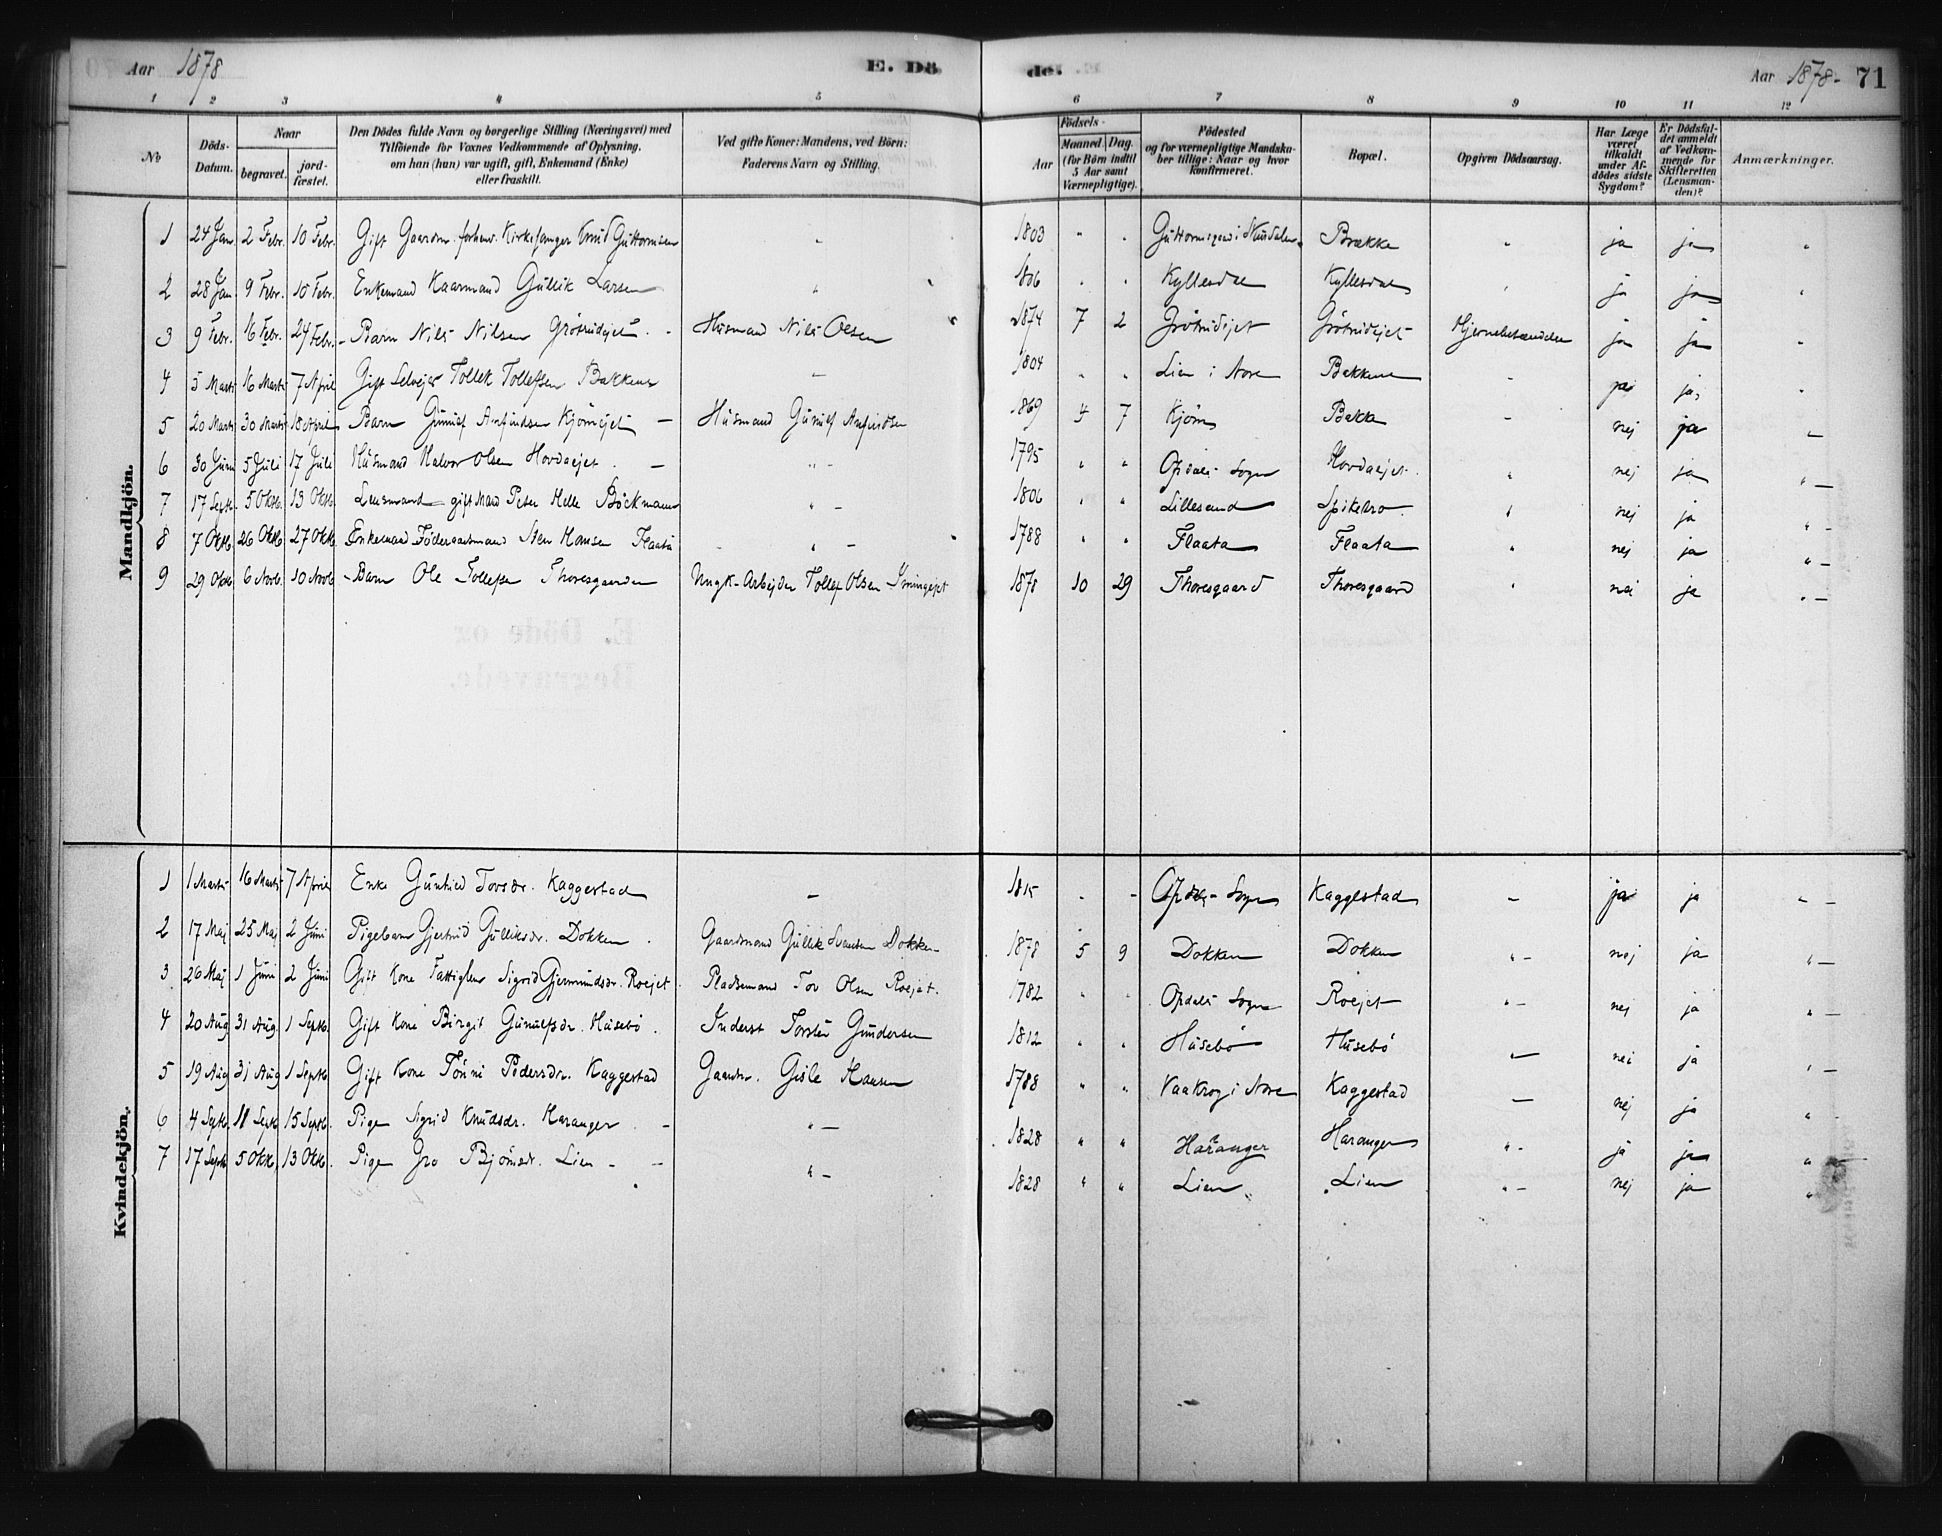 Aar 1878 E. Dö de. Aar 1878- 71
1 2 3 4 5 6 7 8 9 10 11 12
No Döds-Datum. Naar begravet. jordfæstet. Den Dödes fulde Navn og borgerlige Stilling (Næringsvei) med Tilföiende for Voxnes Vedkommende af Oplysning, om han (hun) var ugift, gift, Enkemand (Enke) eller fraskilt. Ved gifte Koner: Mandens, ved Börn: Faderens Navn og Stilling. Födsels- Aar Maaned. Dag. (for Börn indtil 5 Aar samt Værnepligtige). Födested og for værnepligtige Mandskaber tillige: Naar og hvor konfirmeret. Bopæl. Opgiven Dödsaarsag. Har Læge været tilkaldt under Afdödes sidste Sygdom? Er Dödsfaldet anmeldt af Vedkommende for Skifteretten (Lensmanden)? Anmærkninger.
Mandkjön.
1 24 Jan. 2 Febr. 10 Febr. Gift Gaardm. forhenv. Kirkesanger Knud Guttormsen " 1803 " " Guttormsgaard i Brække " ja ja "
2 28 Jan. 9 Febr. 10 Febr. Enkemand Kaarmand Gullik Larsen " 1806 " " Kyllesdal Kyllesdal " ja ja "
3 9 Febr. 16 Febr. 24 Febr. Barn Nils Nilsen Grötrudejet - Husmand Nils Olsen 1874 7 2 Grötrudejet Grötrudejet Hjernebetændelse ja ja "
4 5 Marts 16 Marts 7 April Gift Selvejer Tollek Tollefsen Bakkene - 1804 " " Lien i Nore Bakkene - ja ja "
5 20 Marts 30 Marts 18 April Barn Gunulf Anfindsen Kjömejet - Husmand Gunulf Anfindsen 1869 4 7 Kjöm Bakka - nej ja -
6 30 Juni 5 Juli 17 Juli Husmand Halvor Olsen Hovdaejet - " - 1795 " " Opdals Sogn Hovdaejet " nej ja " -
7 17 Septb. 5 Oktb. 13 Oktb. Lensmand gift Mand Peter Helle Böckmann " - 1806 " " Lillesand Spikebro " nej ja " -
8 7 Oktb. 26 Oktb. 27 Oktb. Enkemand Föderaadsmand Sten Hansen Flaata " - 1788 " " Flaata Flaata " nej ja " -
9 29 Oktb. 6 Novb. 10 Novb. Barn Ole Tollefsen Thoresgaarden Ungk. Arbejder Tollef Olsen 1878 10 29 Thoresgaard Thoresgaard " nei ja " -
Kvindekjön.
1 1 Marts 16 Marts 7 April Enke Gunhild Torsdr. Kaggestad - 1815 - - Opdals Sogn Kaggestad - ja ja " -
2 17 Maj 25 Maj 2 Juni Pigebarn Gjertrud Gulliksdr. Dokken Gaardmand Gullik Svendsen Dokken 1878 5 9 Dokken Dokken " - nej ja " -
3 26 Maj 1 Juni 2 Juni Gift Kone Fattiglem Sigrid Gjermundsdr. Roejet Pladsemand Tov Olsen Roejet. 1782 " " Opdals Sogn Roejet " - nej ja " -
4 20 Aug 31 Aug 1 Septb. Gift Kone Birgit Gunulfsdr. Husebö Inderst Torsten Gundersen 1812 " " Husebö Husebö - nei ja " -
5 19 Aug 31 Aug 1 Septb. Gift Kone Tönni Pedersdr. Kaggestad Gaardbr. Gisle Hansen 1788 " " Vaakrog i Nore Kaggestad - nej ja "
6 4 Septb. 11 Septb. 15 Septb. Pige Sigrid Knudsdr. Haranger - " - 1828 " " Haranger Haranger " - ja ja " -
7 17 Septb. 5 Oktb. 13 Oktb. Pige Gro Björnsdr. Lien - - " - 1828 " " Lien Lien " - nej ja "